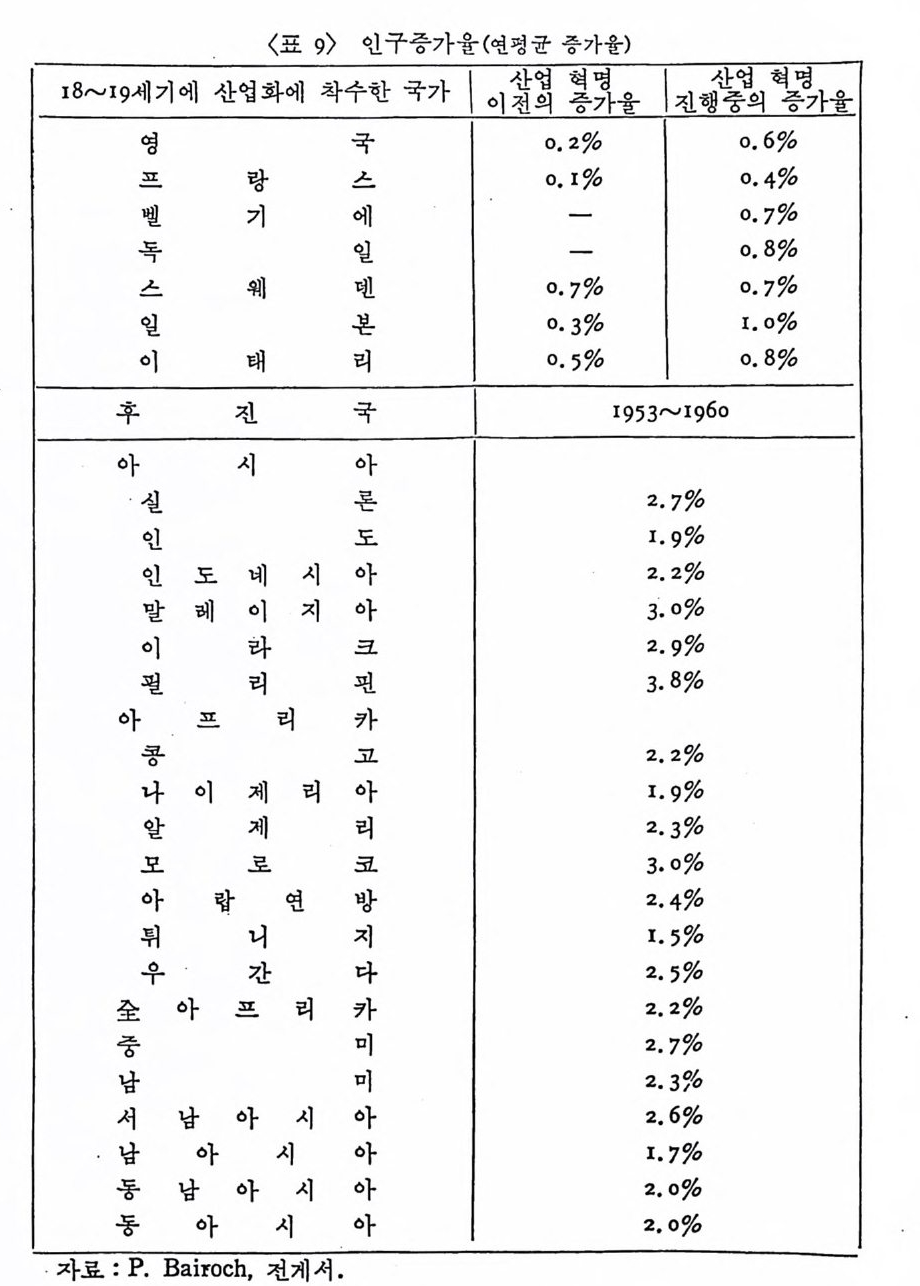 〈표 9〉 인구증가율(연평균 증가율)
18~19세기에 산업화에 착수한 국가 산업 혁명 이전의 증가율 산업 혁명 진행중의 증가율
영국 0.2% 0.6%
프랑스 0.1% 0.4%
벨기에 — 0.7%
독일 — 0.8%
스웨덴 0.7% 0.7%
일본 0.3% 1.0%
이태리 0.5% 0.8%
후진국 1953~1960
아시아
실론 2.7%
인도 1.9%
인도네시아 2.2%
말레이지아 3.0%
이라크 2.9%
필리핀 3.8%
아프리카
콩고 2.2%
나이제리아 1.9%
알제리 2.3%
모로코 3.0%
아랍연방 2.4%
튀니지 1.5%
우간다 2.5%
全아프리카 2.2%
중미 2.7%
남미 2.3%
서남아시아 2.6%
남아시아 1.7%
동남아시아 2.0%
동아시아 2.0%
자료 : P. Bairoch, 전게서.